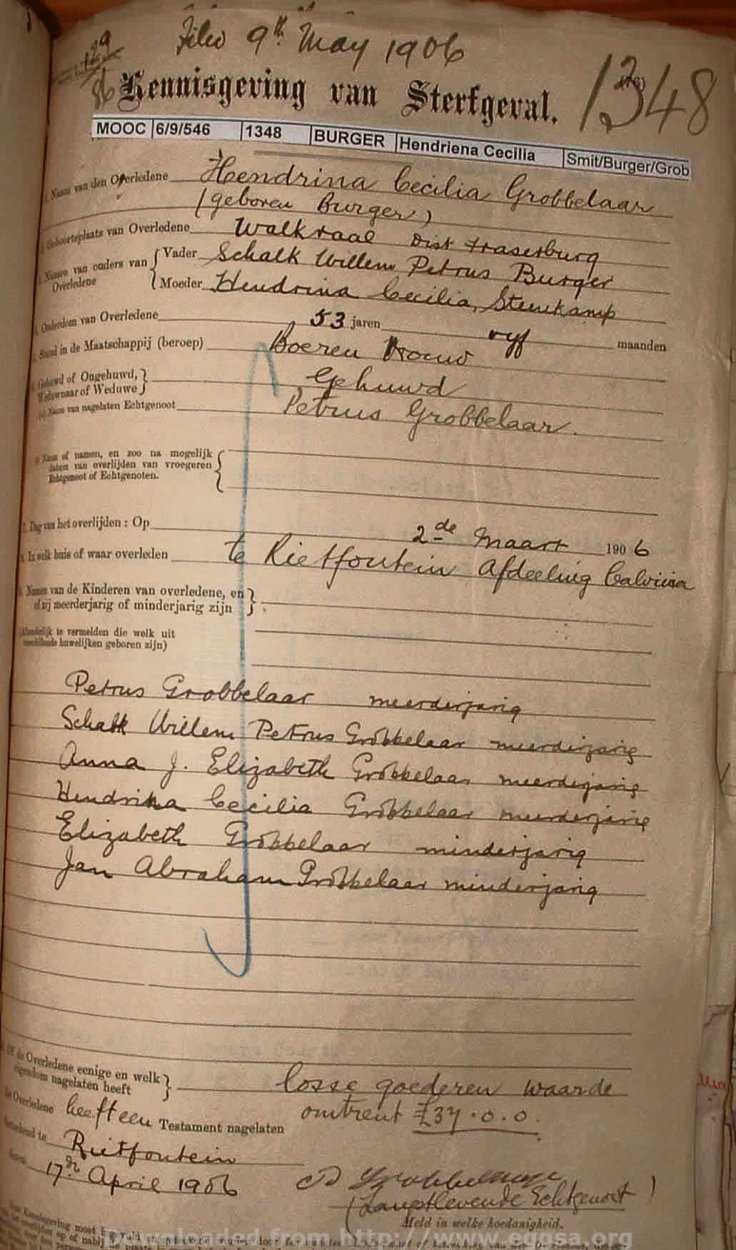 Filed 9th May 1906
1348
Kennisgeving van Sterfgeval.
MOOC 6/9/546 1348 BURGER Hendriena Cecilia Smit/Burger/Grob
Naam van den Overledene Hendrina Cecilia Grobbelaar
(geboren Burger)
Geboorteplaats van Overledene Walkraal Dist Fraserburg
Namen van ouders van Overledene { Vader Schalk Willem Petrus Burger
Moeder Hendrina Cecilia Steenkamp
Ouderdom van Overledene 53 jaren vyf maanden
Stand in de Maatschappij (beroep) Boeren Vrouw
Gehuwd of Ongehuwd, Weduwnaar of Weduwe } Gehuwd
Naam van nagelaten Echtgenoot Petrus Grobbelaar.
Naam of namen, en zoo na mogelijk
datum van overlijden van vroegeren
Echtgenoot of Echtgenoten.
7. Dag van het overlijden: Op 2de Maart 1906
8. In welk huis of waar overleden te Rietfontein Afdeeling Calvinia
9. Namen van de Kinderen van overledene, en
of zij meerderjarig of minderjarig zijn }
te vermelden die welk uit
huwelijken geboren zijn)
Petrus Grobbelaar meerderjarig
Schalk Willem Petrus Grobbelaar meerderjarig
Anna J. Elizabeth Grobbelaar meerderjarig
Hendrika Cecilia Grobbelaar meerderjarig
Elizabeth Grobbelaar minderjarig
Jan Abraham Grobbelaar minderjarig
Of de Overledene eenige en welk
eigendom nagelaten heeft } losse goederen waarde
omtrent £37.0.0.
De Overledene heeft een Testament nagelaten
te Rietfontein
17de April 1906
Grobbelaar
(Langstlevende Echtgenoot)
Meld in welke hoedanigheid.
Downloaded from http://www.eggsa.org